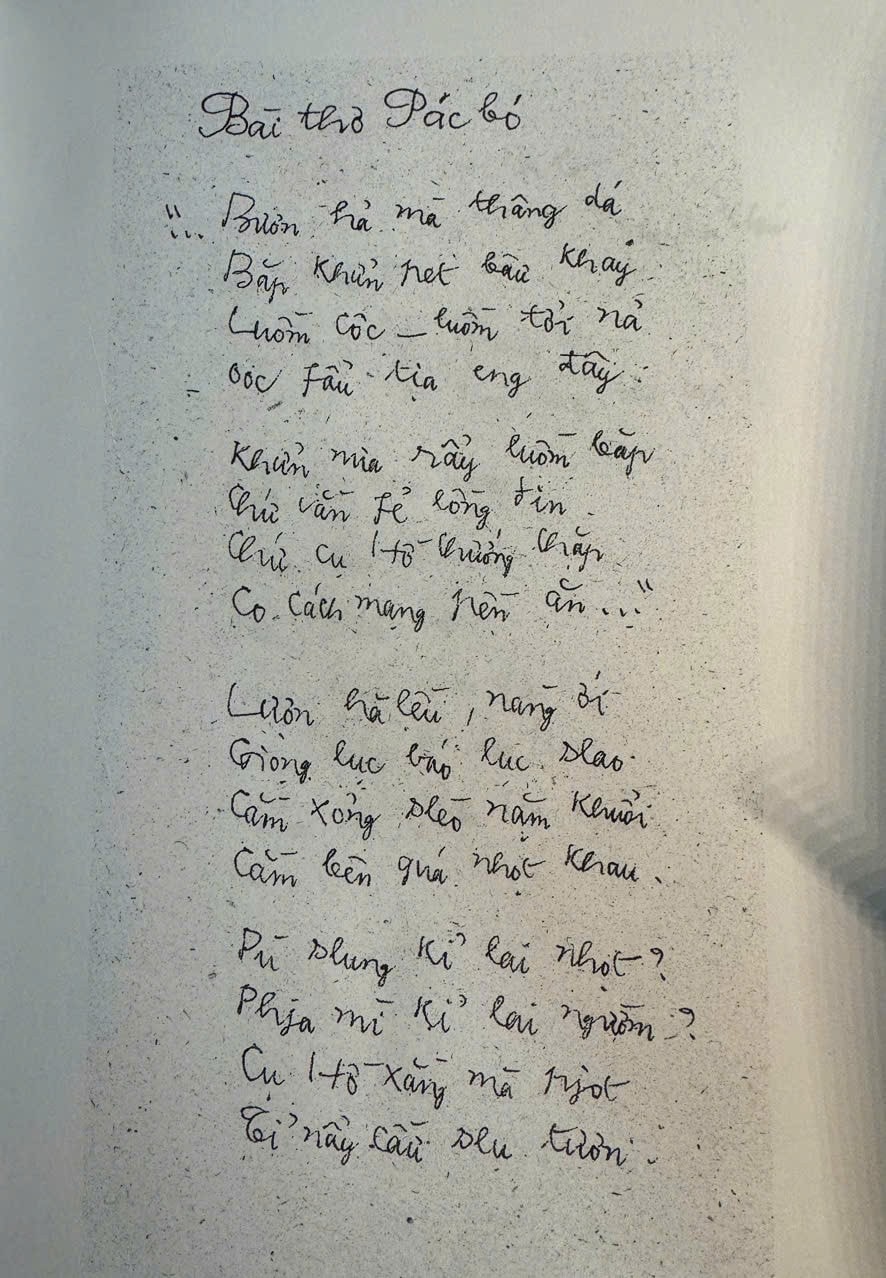 Bài thơ Pác bó
"... Bươn hả mà thâng dá
Bắp khửn pet bâu khay
Luồm cốc – luồm tởi nả
Oóc fầu tịa eng đây.
Khửn mìa rẩy luồm bắp
Chứ vằn fẻ lồng đin.
Chứ cụ Hồ thướng thắp
Co cách mạng pền ăn..."
Lươn hà lếu, nàng ới
Giòng lục báo lục slao.
Cằm xỏng slẽo nặm khuổi
Cằm bên quá nhọt khau.
Pù slung kỉ lai nhọt?
Phja mì kỉ lai ngườm?
Cụ Hồ xằng mà pjọt
Tỉ nẩy cẩu slu tươn.